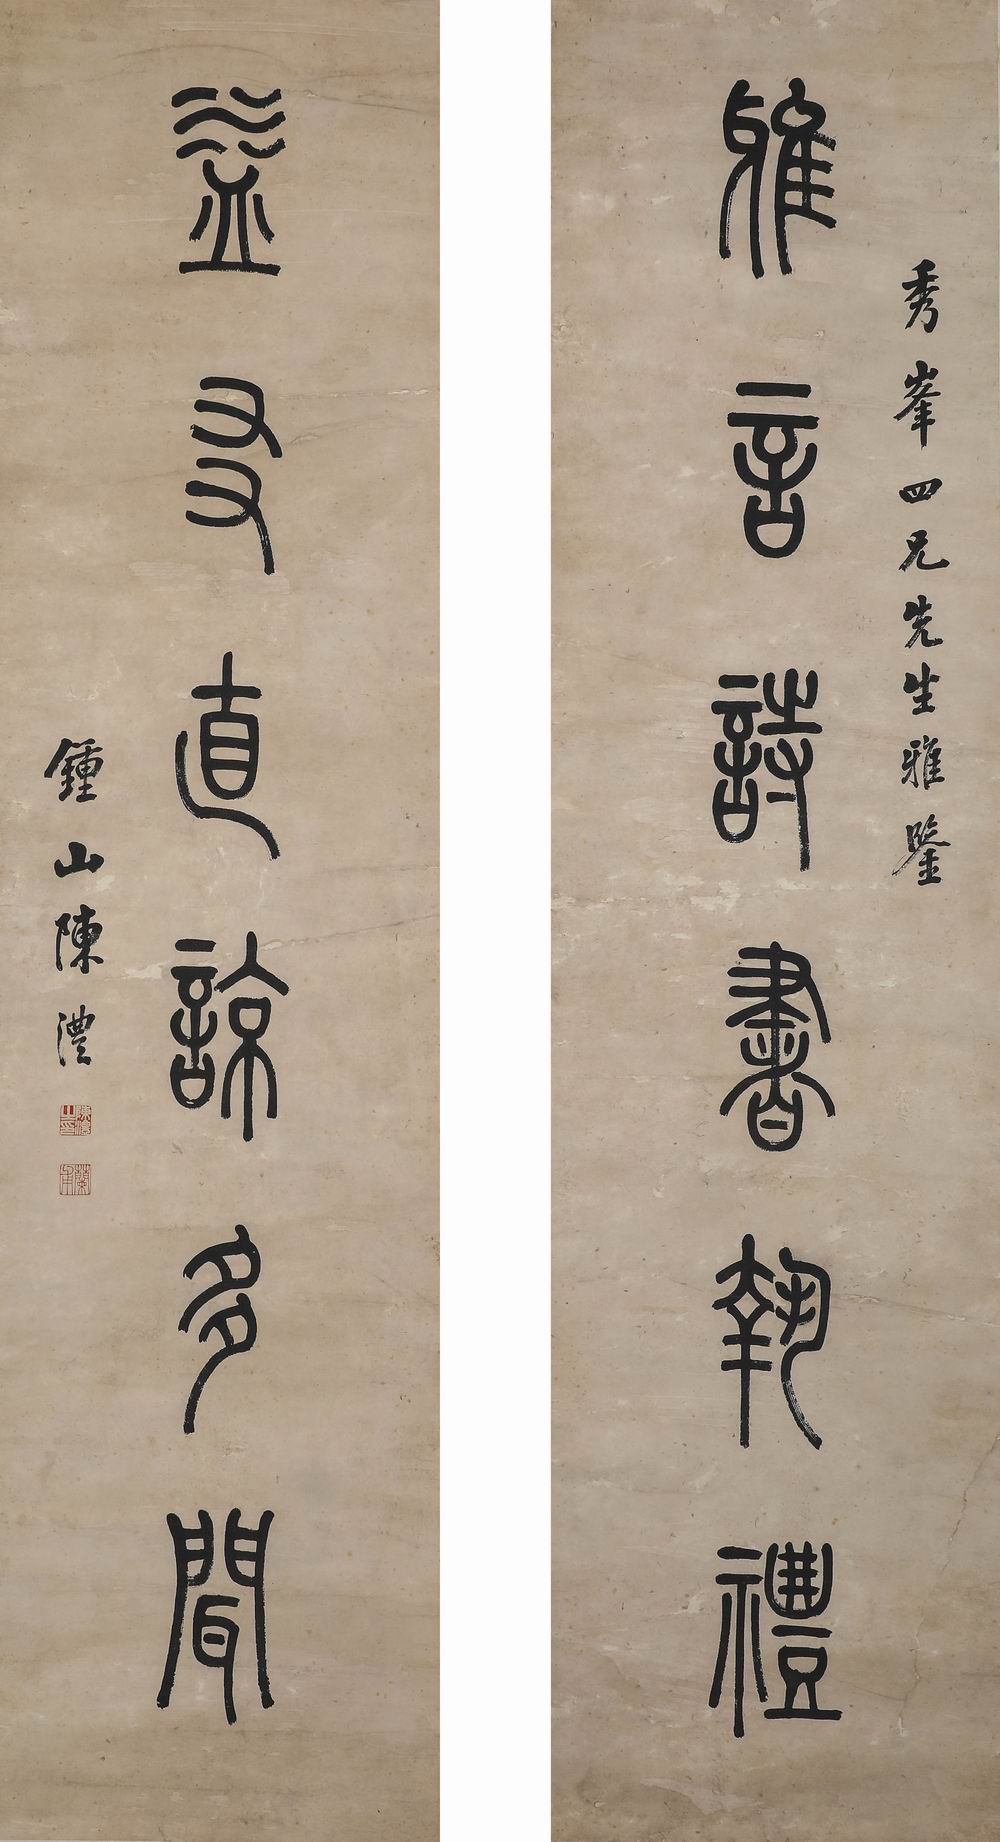 秀峯四兄先生雅鑒
雅言詩書執禮
益友直諒多聞
鍾山陳澧
陳澧之印
蘭甫